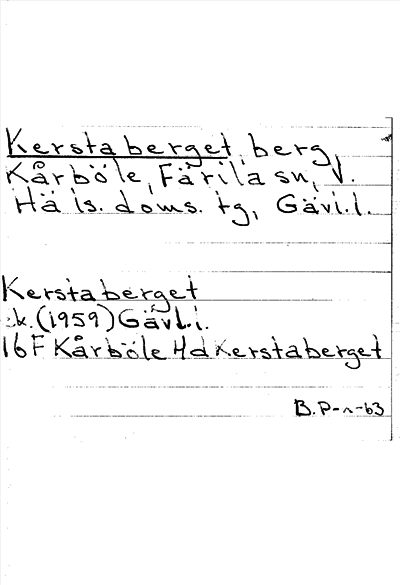 Kerstaberget, berg,
Kårböle, Färila sn, V.
Häls. doms. tg, Gävl.l.
Kerstaberget
ek. (1959) Gävl.l.
16F Kårböle 4d Kerstaberget
B.P-n-63